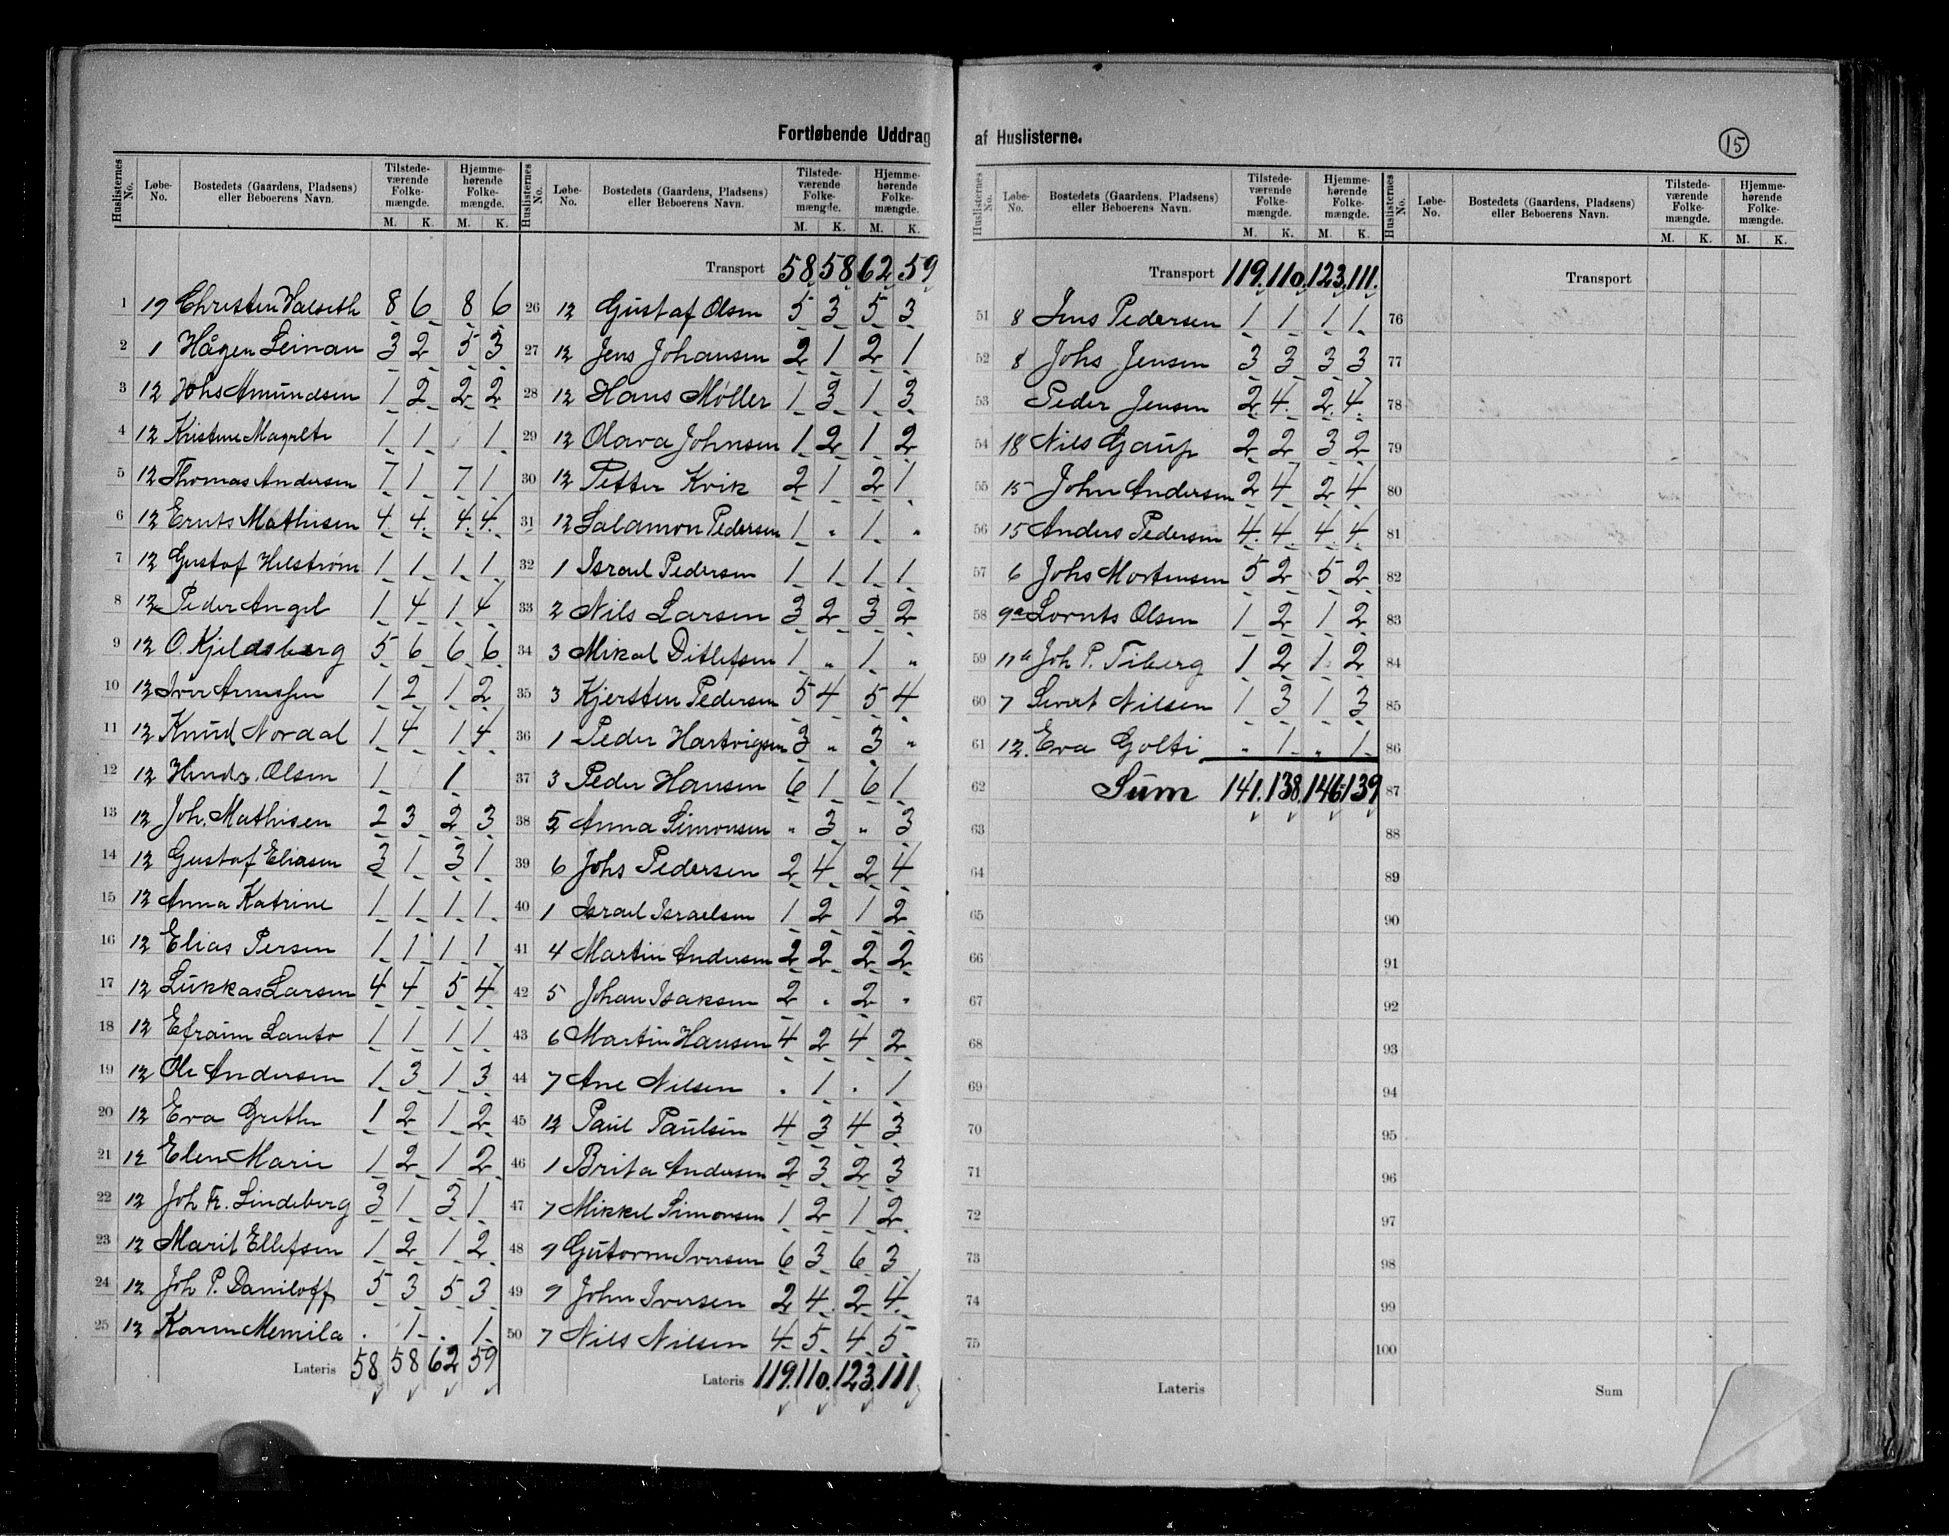 Fortløbende Uddrag af Huslisterne.
15
Huslisternes No. Løbe-No. Bostedets (Gaardens, Pladsens) eller Beboerens Navn. Tilstedeværende Folkemængde. M. K. Hjemmehørende Folkemængde. M. K.
1 17 Christen Halseth 8 6 8 6
2 1 Hågen Leinan 3 2 5 3
3 12 Johs Amundsen 1 2 2 2
4 12 Kristine Magrete 1 1 1
5 12 Thomas Andersen 7 1 7 1
6 12 Ernts Mathisen 4 4 4 4
7 12 Gustaf Hilstrøm 1 1 1 1
8 12 Peder Angel 1 4 1 4
9 12 O. Kjeldsberg 5 6 6 6
10 12 Iver 1 2 1 2
11 12 Knud Nordal 1 4 1 4
12 12 Hendr. Olsen 1 1
13 12 Joh. Mathisen 2 3 2 3
14 12 Gustaf Eliasen 3 1 3 1
15 12 Anna Katrine 1 1 1 1
16 12 Elias Persen 1 1 1 1
17 12 Lukkas Larsen 4 4 5 4
18 12 Efraim Lanto 1 1 1 1
19 12 Ole Andersen 1 3 1 3
20 12 Eva Grethe 1 2 1 2
21 12 Elen Marie 1 2 1 2
22 12 Joh Fr. Lindeberg 3 1 3 1
23 12 Marit Ellefsen 1 2 1 2
24 12 Joh P. Daniloff 5 3 5 3
25 12 Karen Memila . 1 . 1
Lateris 58 58 62 59
Huslisternes No. Løbe-No. Bostedets (Gaardens, Pladsens) eller Beboerens Navn. Tilstedeværende Folkemængde. M. K. Hjemmehørende Folkemængde. M. K.
Transport 58 58 62 59
26 12 Gustaf Olsen 5 3 5 3
27 12 Jens Johansen 2 1 2 1
28 12 Hans Møller 1 3 1 3
29 12 Olava Johnsen 1 2 1 2
30 12 Petter Kvik 2 1 2 1
31 12 Salamon Pedersen 1 " 1 "
32 1 Israel Pedersen 1 1 1 1
33 2 Nils Larsen 3 2 3 2
34 3 Mikal Ditlefsen 1 " 1 "
35 3 Kjersten Pedersen 5 4 5 4
36 1 Peder Hartvigsen 3 " 3 "
37 3 Peder Hansen 6 1 6 1
38 5 Anna Simonsen " 3 " 3
39 6 Johs Pedersen 2 4 2 4
40 1 Israel Israelsen 1 2 1 2
41 4 Martin Andersen 2 2 2 2
42 5 Johan Isaksen 2 . 2 "
43 6 Martin Hansen 4 2 4 2
44 7 Ane Nilsen . 1 . 1
45 12 Paul Paulsen 4 3 4 3
46 1 Brita Andersen 2 3 2 3
47 7 Mikkel Simonsen 1 2 1 2
48 9 Gutorm Iversen 6 3 6 3
49 9 John Iversen 2 4 2 4
50 7 Nils Nilsen 4 5 4 5
Lateris 119. 110. 123. 111
Huslisternes No. Løbe-No. Bostedets (Gaardens, Pladsens) eller Beboerens Navn. Tilstedeværende Folkemængde. M. K. Hjemmehørende Folkemængde. M. K.
Transport 119. 110. 123. 111.
51 8 Jens Pedersen 1 1 1 1
52 8 Johs Jensen 3 3 3 3
53 Peder Jensen 2 4. 2. 4.
54 18 Nils Gaup 2 2 3 2
55 15 John Andersen 2 4 2 4
56 15 Anders Pedersen 4 4 4 4
57 6 Johs Mortensen 5 2 5 2
58 9a Lornts Olsen 1 2 1 2
59 Joh P. Tiberg 1 2 1 2
60 7 Sivert Nilsen 1 3 1 3
61 12. Eva Golti " 1 " 1
62 Sum 141. 138. 146. 139
63
64
65
66
67
68
69
70
71
72
73
74
75
Lateris
Huslisternes No. Løbe-No. Bostedets (Gaardens, Pladsens) eller Beboerens Navn. Tilstedeværende Folkemængde. M. K. Hjemmehørende Folkemængde. M. K.
Transport
76
77
78
79
80
81
82
83
84
85
86
87
88
89
90
91
92
93
94
95
96
97
98
99
100
Sum